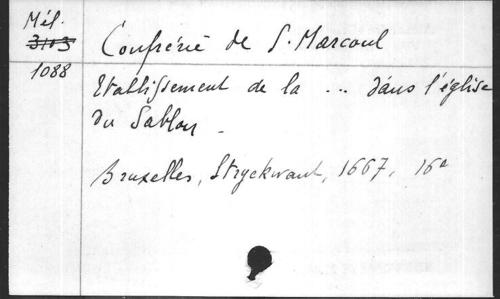 Mél.
3103
1088
Confrérie de S. Marcoul
Etablissement de la ... dans l'église
du Sablon
Bruxelles, Stryckwant, 1667, 16°